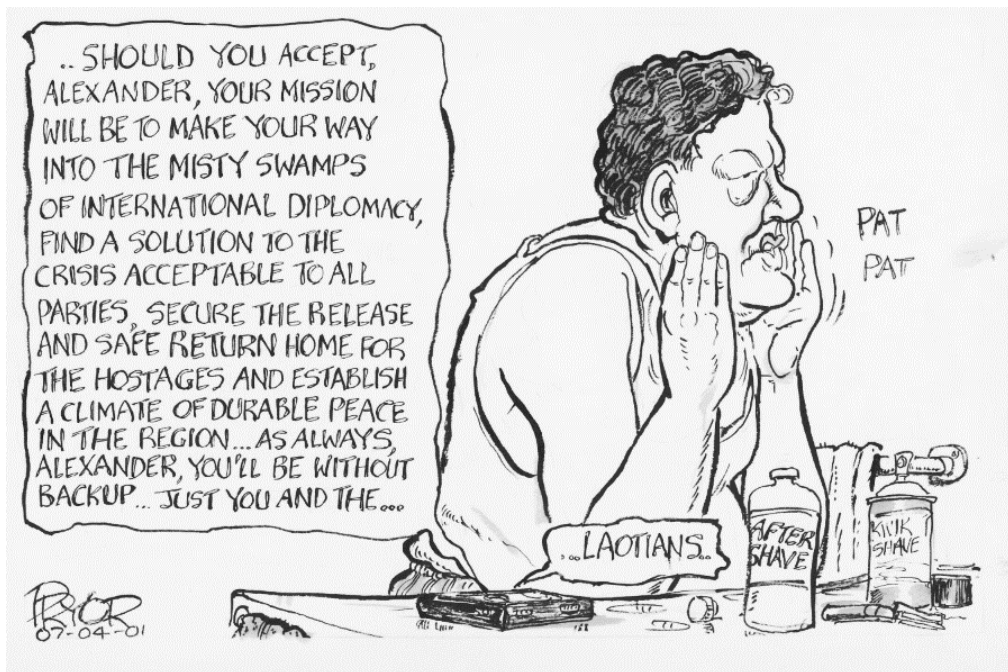 ..SHOULD YOU ACCEPT,
ALEXANDER, YOUR MISSION
WILL BE TO MAKE YOUR WAY
INTO THE MISTY SWAMPS
OF INTERNATIONAL DIPLOMACY,
FIND A SOLUTION TO THE
CRISIS ACCEPTABLE TO ALL
PARTIES, SECURE THE RELEASE
AND SAFE RETURN HOME FOR
THE HOSTAGES AND ESTABLISH
A CLIMATE OF DURABLE PEACE
IN THE REGION... AS ALWAYS,
ALEXANDER, YOU'LL BE WITHOUT
BACKUP... JUST YOU AND THE...
PAT
PAT
...LAOTIANS...
AFTER
SHAVE
KWIK
SHAVE
PRYOR
07-04-01